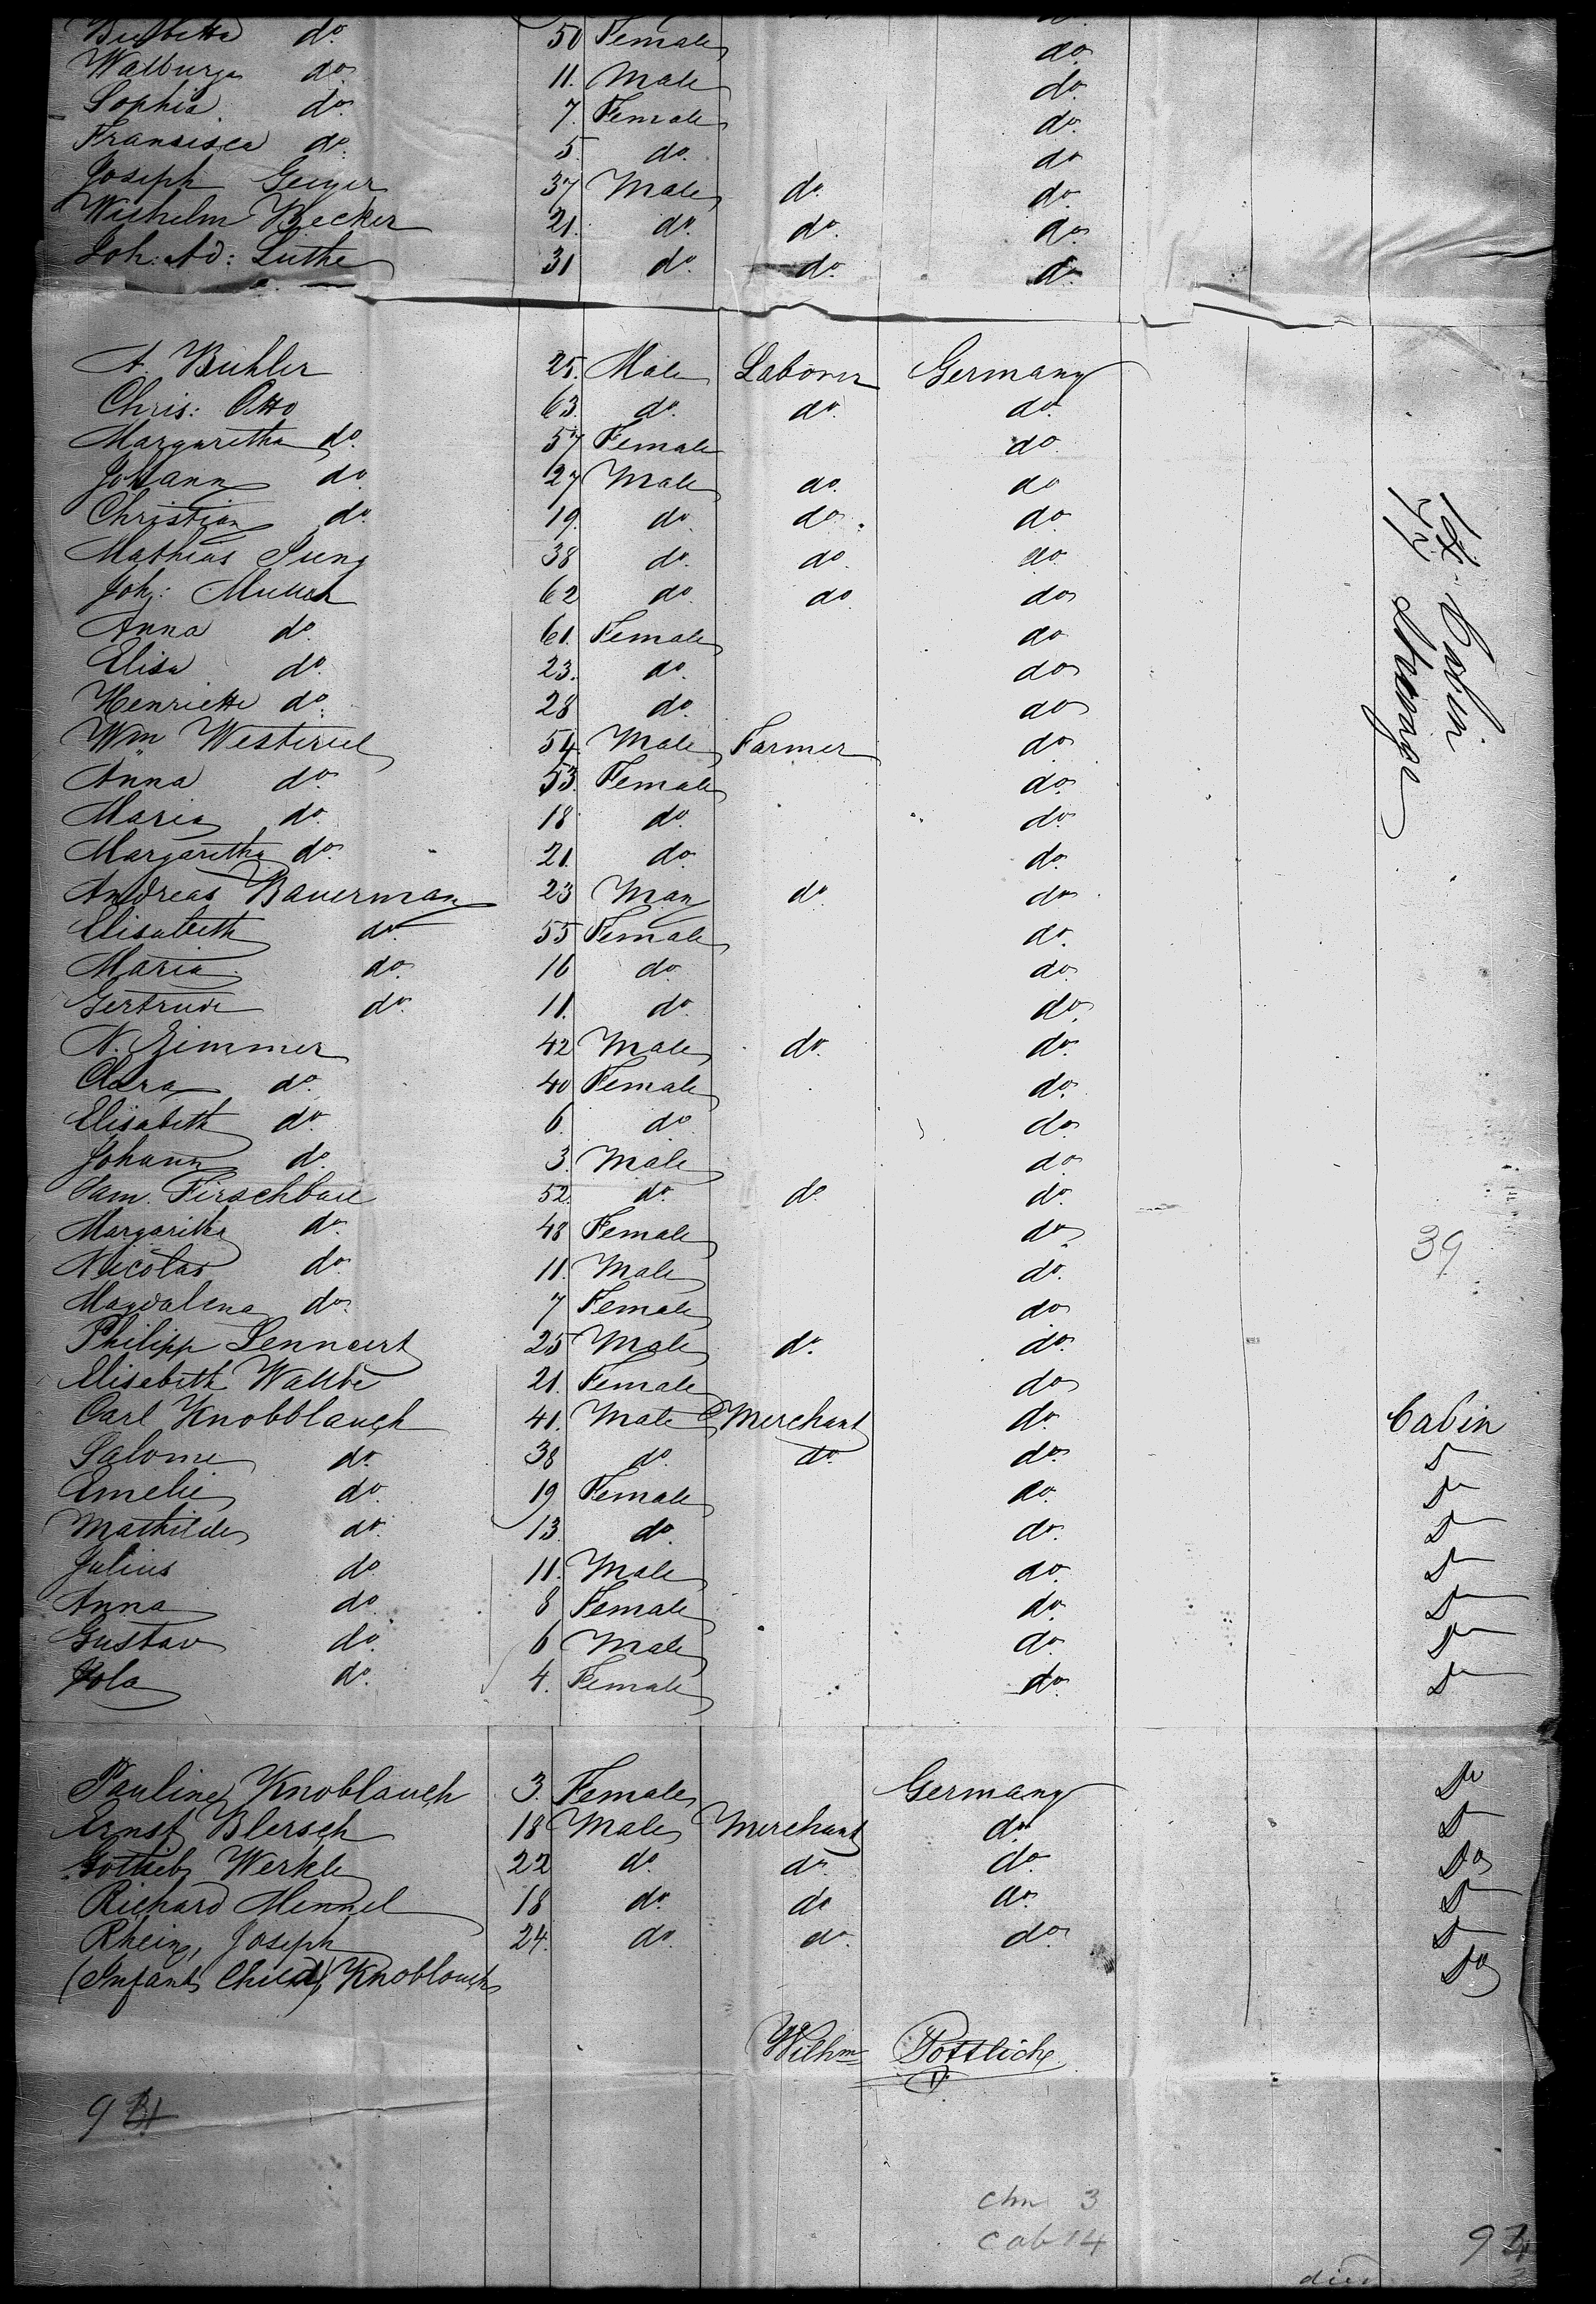 Babetta do. 50 Female do.
Walburga do. 11. Male do.
Sophia do. 7. Female do.
Fransisca do. 5. do. do
Joseph Geiger 37 Male do. do.
Wilhelm Becker 21. do. do. do.
Joh: Ad: Luthe 31 do. do. do.
A. Buhler 25. Male Laborer Germany
Chris: Otto 63. do. do. do.
Margaretha do. 57 Female do.
Johann do. 27 Male do. do
Christian do. 19. do. do. do.
Mathias Jung 38 do. do. do
Joh: Musch 62 do. do. do
Anna do. 61. Female do
Elisa do. 23. do. do
Henriette do. 28 do. do
Wm Westeriel 54. Male Farmer do.
Anna do. 53. Female do.
Maria do. 18 do. do.
Margaretha do. 21. do. do.
Andreas Bauerman 23 Man do. do.
Elisabeth do. 55 Female do.
Maria do. 16 do. do.
Gertrude do. 11. do. do.
N. Zimmer 42 Male do. do.
Clara do. 40 Female do.
Elisabeth do. 6. do. do.
Johann do. 3. Male do.
Sam. Firschbau 52. do. do. do.
Margaritha do. 48 Female do.
Nicolas do. 11. Male do.
Magdalena do. 7 Female do.
Philipp Lennert 25 Male do. do.
Elisabeth 21. Female do
Carl Knobblauch 41. Male Merchant do. Cabin
Salome do. 38 do. do. do. Do
Emelie do. 19 Female do. Do
Mathilde do. 13. do. do. Do
Julius do 11. Male do. Do
Anna do. 8 Female do. Do
Gustav do. 6 Male do. Do
Yola do. 4. Female do. Do
1st Cabin
Steerage
39
Pauline Knoblauch 3. Female Germany Do
Ernst Blersch 18 Male Merchant do. Do
Gottlieb Werkle 22 do. do. do. Do
Richard Hennel 18 do. do do. Do
Rhein, Joseph 24. do. do. do. Do
(Infant Child) Knoblauch Do
Wilhm Pottlich
chn 3
cab 14
died